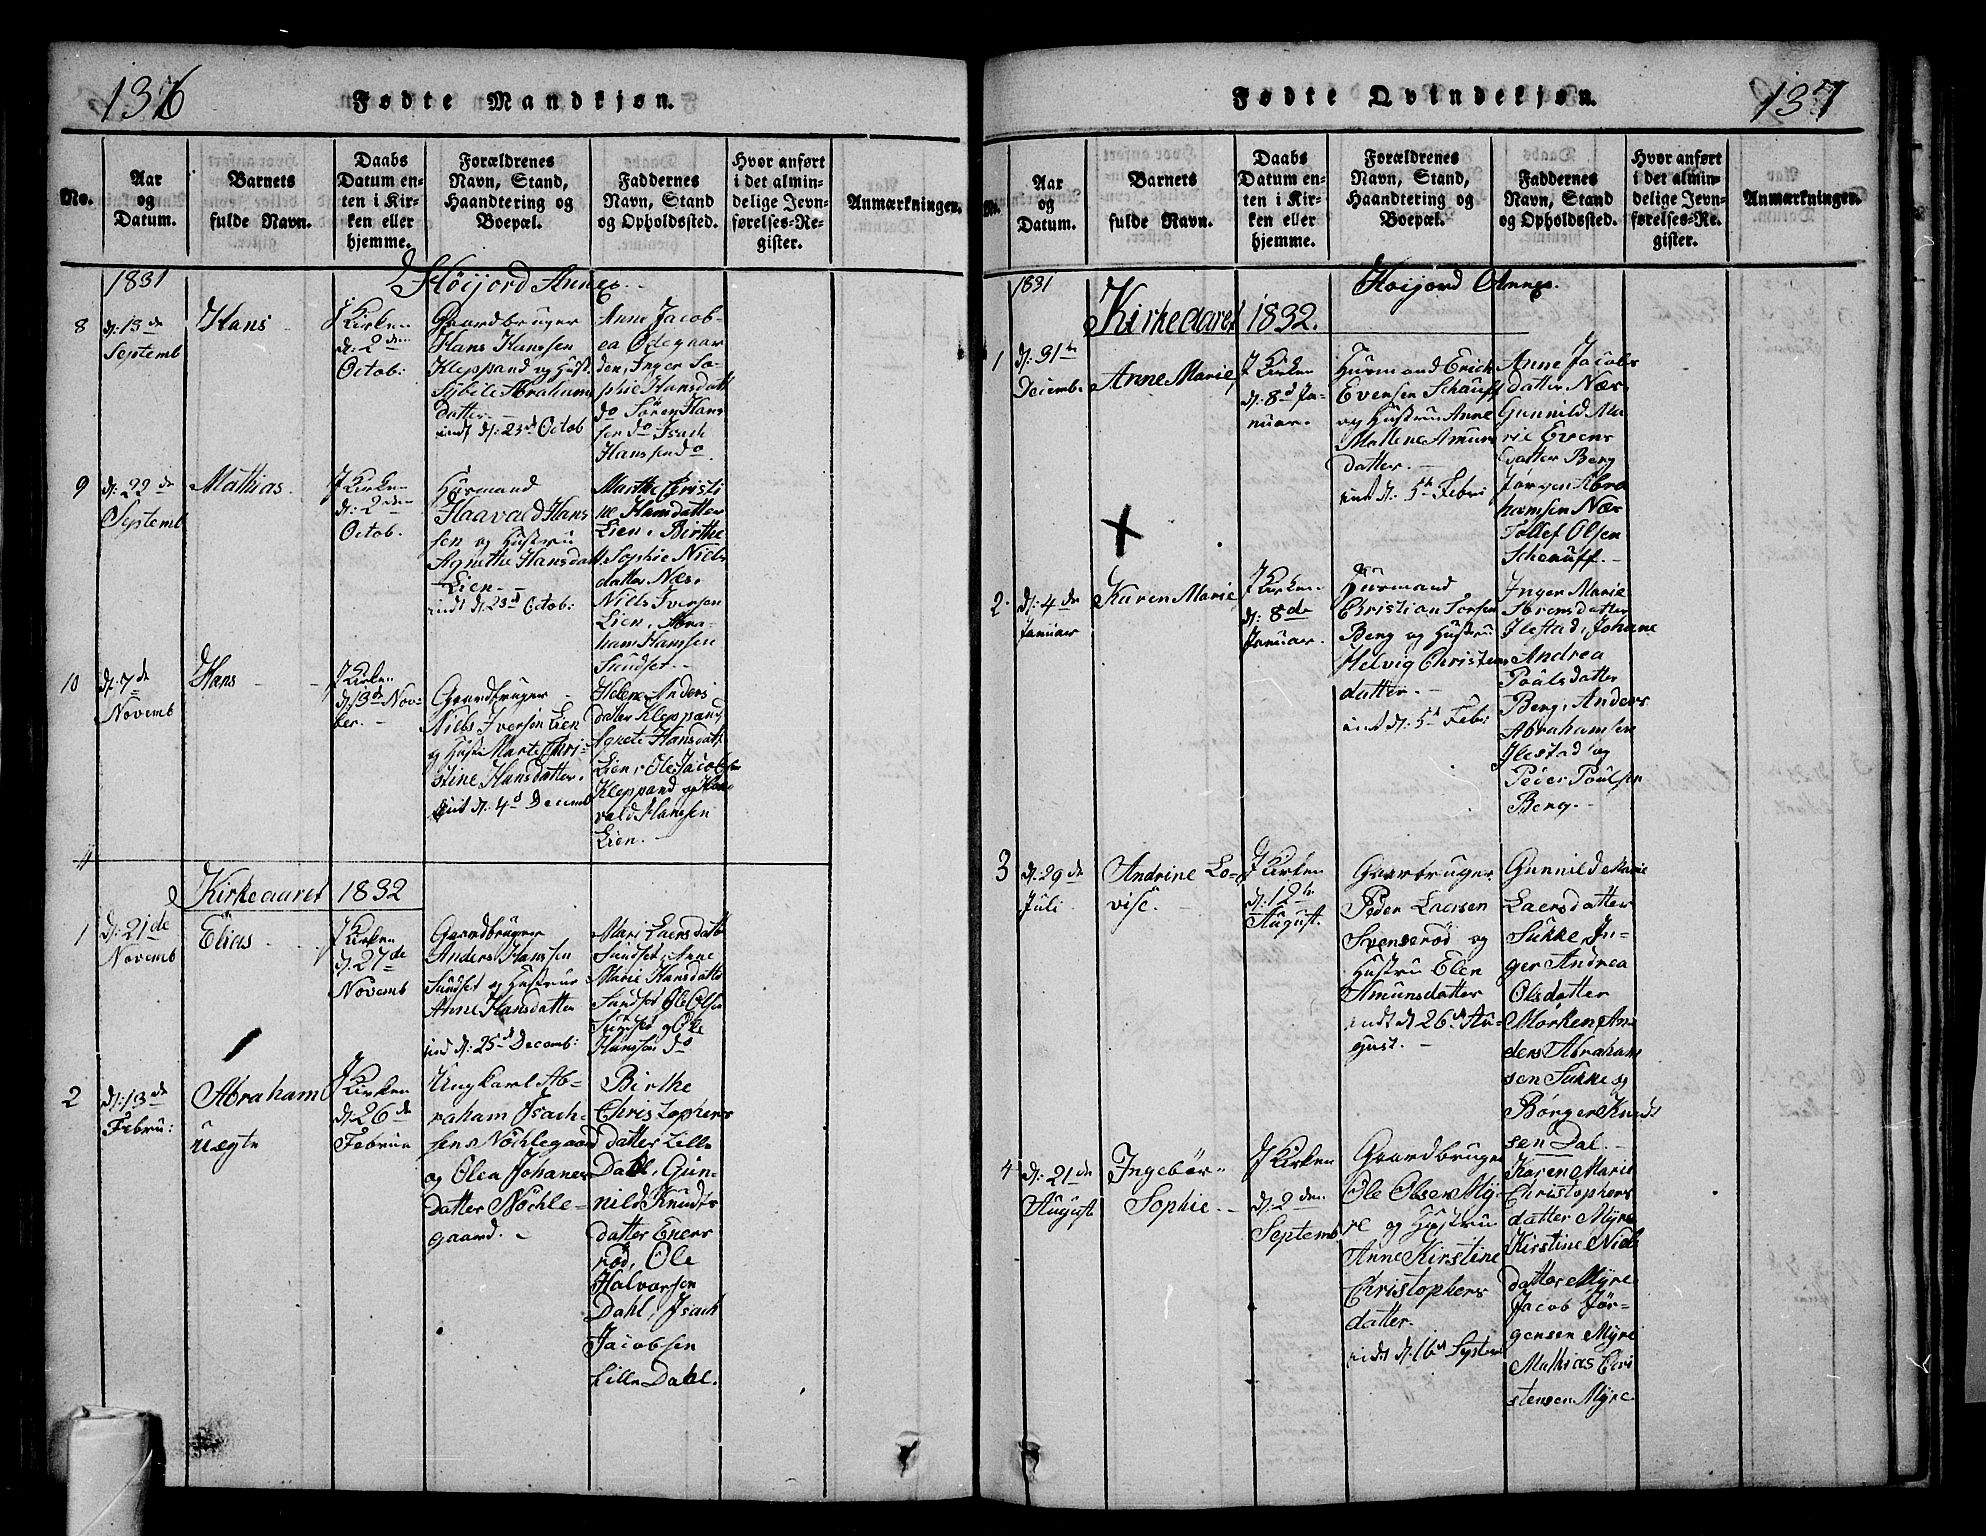 136
Fødte Mandkjøn.
No.
Aar
og
Datum.
Barnets
fulde Navn.
Daabs
Datum en-
ten i Kir-
ken eller
hjemme.
Forældrenes
Navn, Stand,
Haandtering og
Boepæl.
Faddernes
Navn, Stand
og Opholdssted.
Hvor anført
i det almin-
delige Jevn-
førelses-Re-
gister.
Anmærkninger.
1831
Høijord Annex
8
d: 13de
Septemb
Hans
I Kirken
d: 2den
Octob:
Gaardbruger
Hans Hansen
Kleppand og Hust
Sybile Abrahams
datter
indt d: 23d Octob
Anne Jacob-
ea Ødegaar
den, Inger So-
phie Hansdatt
do Søren Hans
sen do Isach
Hanssen do
9
d: 22de
Septemb
Mathias
I Kirken
d: 2den
Octob.
Huusmand
Haavald Hans
sen og Hustru
Agnethe Hansdatt
Lien
indt d: 23d Octob:
Marthe Christi
ne Hansdatter
Lien, Birthe
Sophie Niels
datter Næs,
Niels Iversen
Lien, Abra-
ham Hanssen
Sundset
10
d: 7de
Novemb
Hans
I Kirken
d: 13de Nov-
ber.
Gaardbruger
Niels Iversen Lien
og Hust: Marte Chri-
stine Hansdatter.
indt d: 4d Decemb
Helene Anders
datter Kleppand,
Agnete Hansdatt
Lien, Ole Jacobs
Kleppand og Haa
vald Hanssen
Lien.
Kirkeaaret 1832
1
d: 21de
Novemb
Elias
I Kirken
d: 27de
Novemb
Gaardbruger
Anders Hanssen
Sundset og Hustrue
Anne Hansdatter
ind d: 25d Decemb:
Mari Laersdatt
Sundset, Anne
Marie Hansdatte
Sundset Ole Olsen
Sundset og Ole
Hanssøn do
2
d: 13de
Febru:
Abraham
uægte
I Kirken
d: 26de
Februa
Ungkarl Ab-
raham Isach-
sen Nöchlegaard
og Olea Johanes
datter Nöchle-
gaard.
Birthe
Christophers
datter Lille
Dahl, Gun-
nild Knudts
datter Eners
rød, Ole
Halvorsen
Dahl, Isach
Jacobsen
Lille Dahl.
137
Fødte Qvindekjøn.
No.
Aar
og
Datum.
Barnets
fulde Navn.
Daabs
Datum en-
ten i Kir-
ken eller
hjemme.
Forældrenes
Navn, Stand,
Haandtering og
Boepæl.
Faddernes
Navn, Stand
og Opholdssted.
Hvor anført
i det almin-
delige Jevn-
førelses-Re-
gister.
Anmærkninger.
1831
Høijord Annex.
Kirkeaaret 1832.
1
d: 31te
Decembe
Anne Marie
I Kirken
d: 8d Ja-
nuar.
Huusmand Erich
Evensen Schauff
og Hustru Anne
Mallene Amun
datter.
indt d: 5te Febri
Anne Jacobs
datter Næs,
Gunnild Ma
rie Evens
datter Berg
Jørgen Abra
hamsen Næs
Tollef Olsen
Schauff.
2.
d: 4de
Januar
Karen Marie
I Kirken
d: 8de
Januar.
Huusmand
Christian Torsen
Berg og Hustru
Helvig Christens
datter.
indt d: 5d Febr
Inger Marie
Sørensdatter
Ilestad, Johane
Andrea
Poulsdatter
Berg, Anders
Abrahamsen
Ilestad og
Peder Poulsen
Berg.
3
d: 29de
Juli
Andrine Lo-
vise.
I Kirken
d: 12te
August.
Gaardbruger
Peder Laersen
Svenserød og
Hustru Elen
Amunsdatter
indt d 26de Au-
gust.
Gunnild Marie
Laersdatter
Sukke, In-
ger Andrea
Olsdatter
Mørken, An-
ders Abraham
sen Sukke og
Børger Knudt
sen Dal
4
d: 21de
August
Ingebør
Sophie.
I Kirken
d: 2den
Septemb
Gaardbruger
Ole Olsen My-
re og Hustru
Anne Kirstine
Christophers
datter.
indt d: 16d Septem
Karen Marie
Christophers
datter Myre
Kirstine Niels
datter Myre
Jacob Jør-
gensen Myre
Mathias Chri
stensen Myre